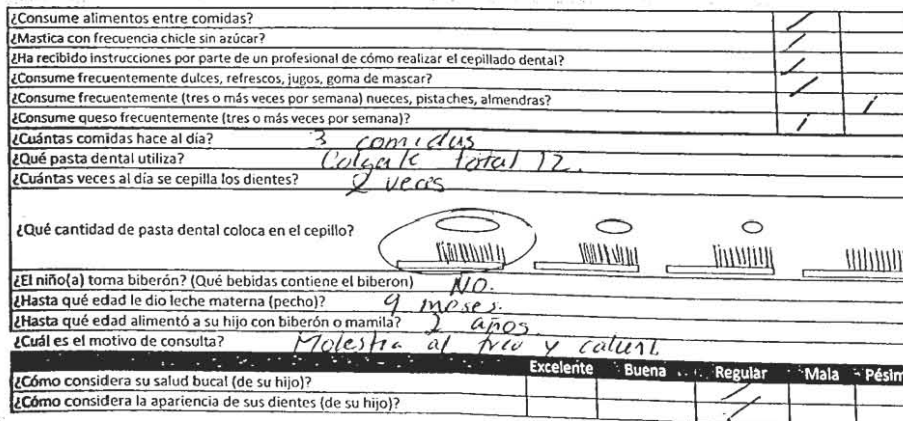 ¿Consume alimentos entre comidas? /
¿Mastica con frecuencia chicle sin azúcar? /
¿Ha recibido instrucciones por parte de un profesional de cómo realizar el cepillado dental? /
¿Consume frecuentemente dulces, refrescos, jugos, goma de mascar? /
¿Consume frecuentemente (tres o más veces por semana) nueces, pistaches, almendras? /
¿Consume queso frecuentemente (tres o más veces por semana)? /
¿Cuántas comidas hace al día? 3 comidas
¿Qué pasta dental utiliza? Colgate total 12.
¿Cuántas veces al día se cepilla los dientes? 2 veces
¿Qué cantidad de pasta dental coloca en el cepillo?
¿El niño(a) toma biberón? (Qué bebidas contiene el biberon) NO.
¿Hasta qué edad le dio leche materna (pecho)? 9 meses.
¿Hasta qué edad alimentó a su hijo con biberón o mamila? 2 años
¿Cuál es el motivo de consulta? Molestia al frio y
Excelente Buena Regular Mala Pésim
¿Cómo considera su salud bucal (de su hijo)? /
¿Cómo considera la apariencia de sus dientes (de su hijo)? /